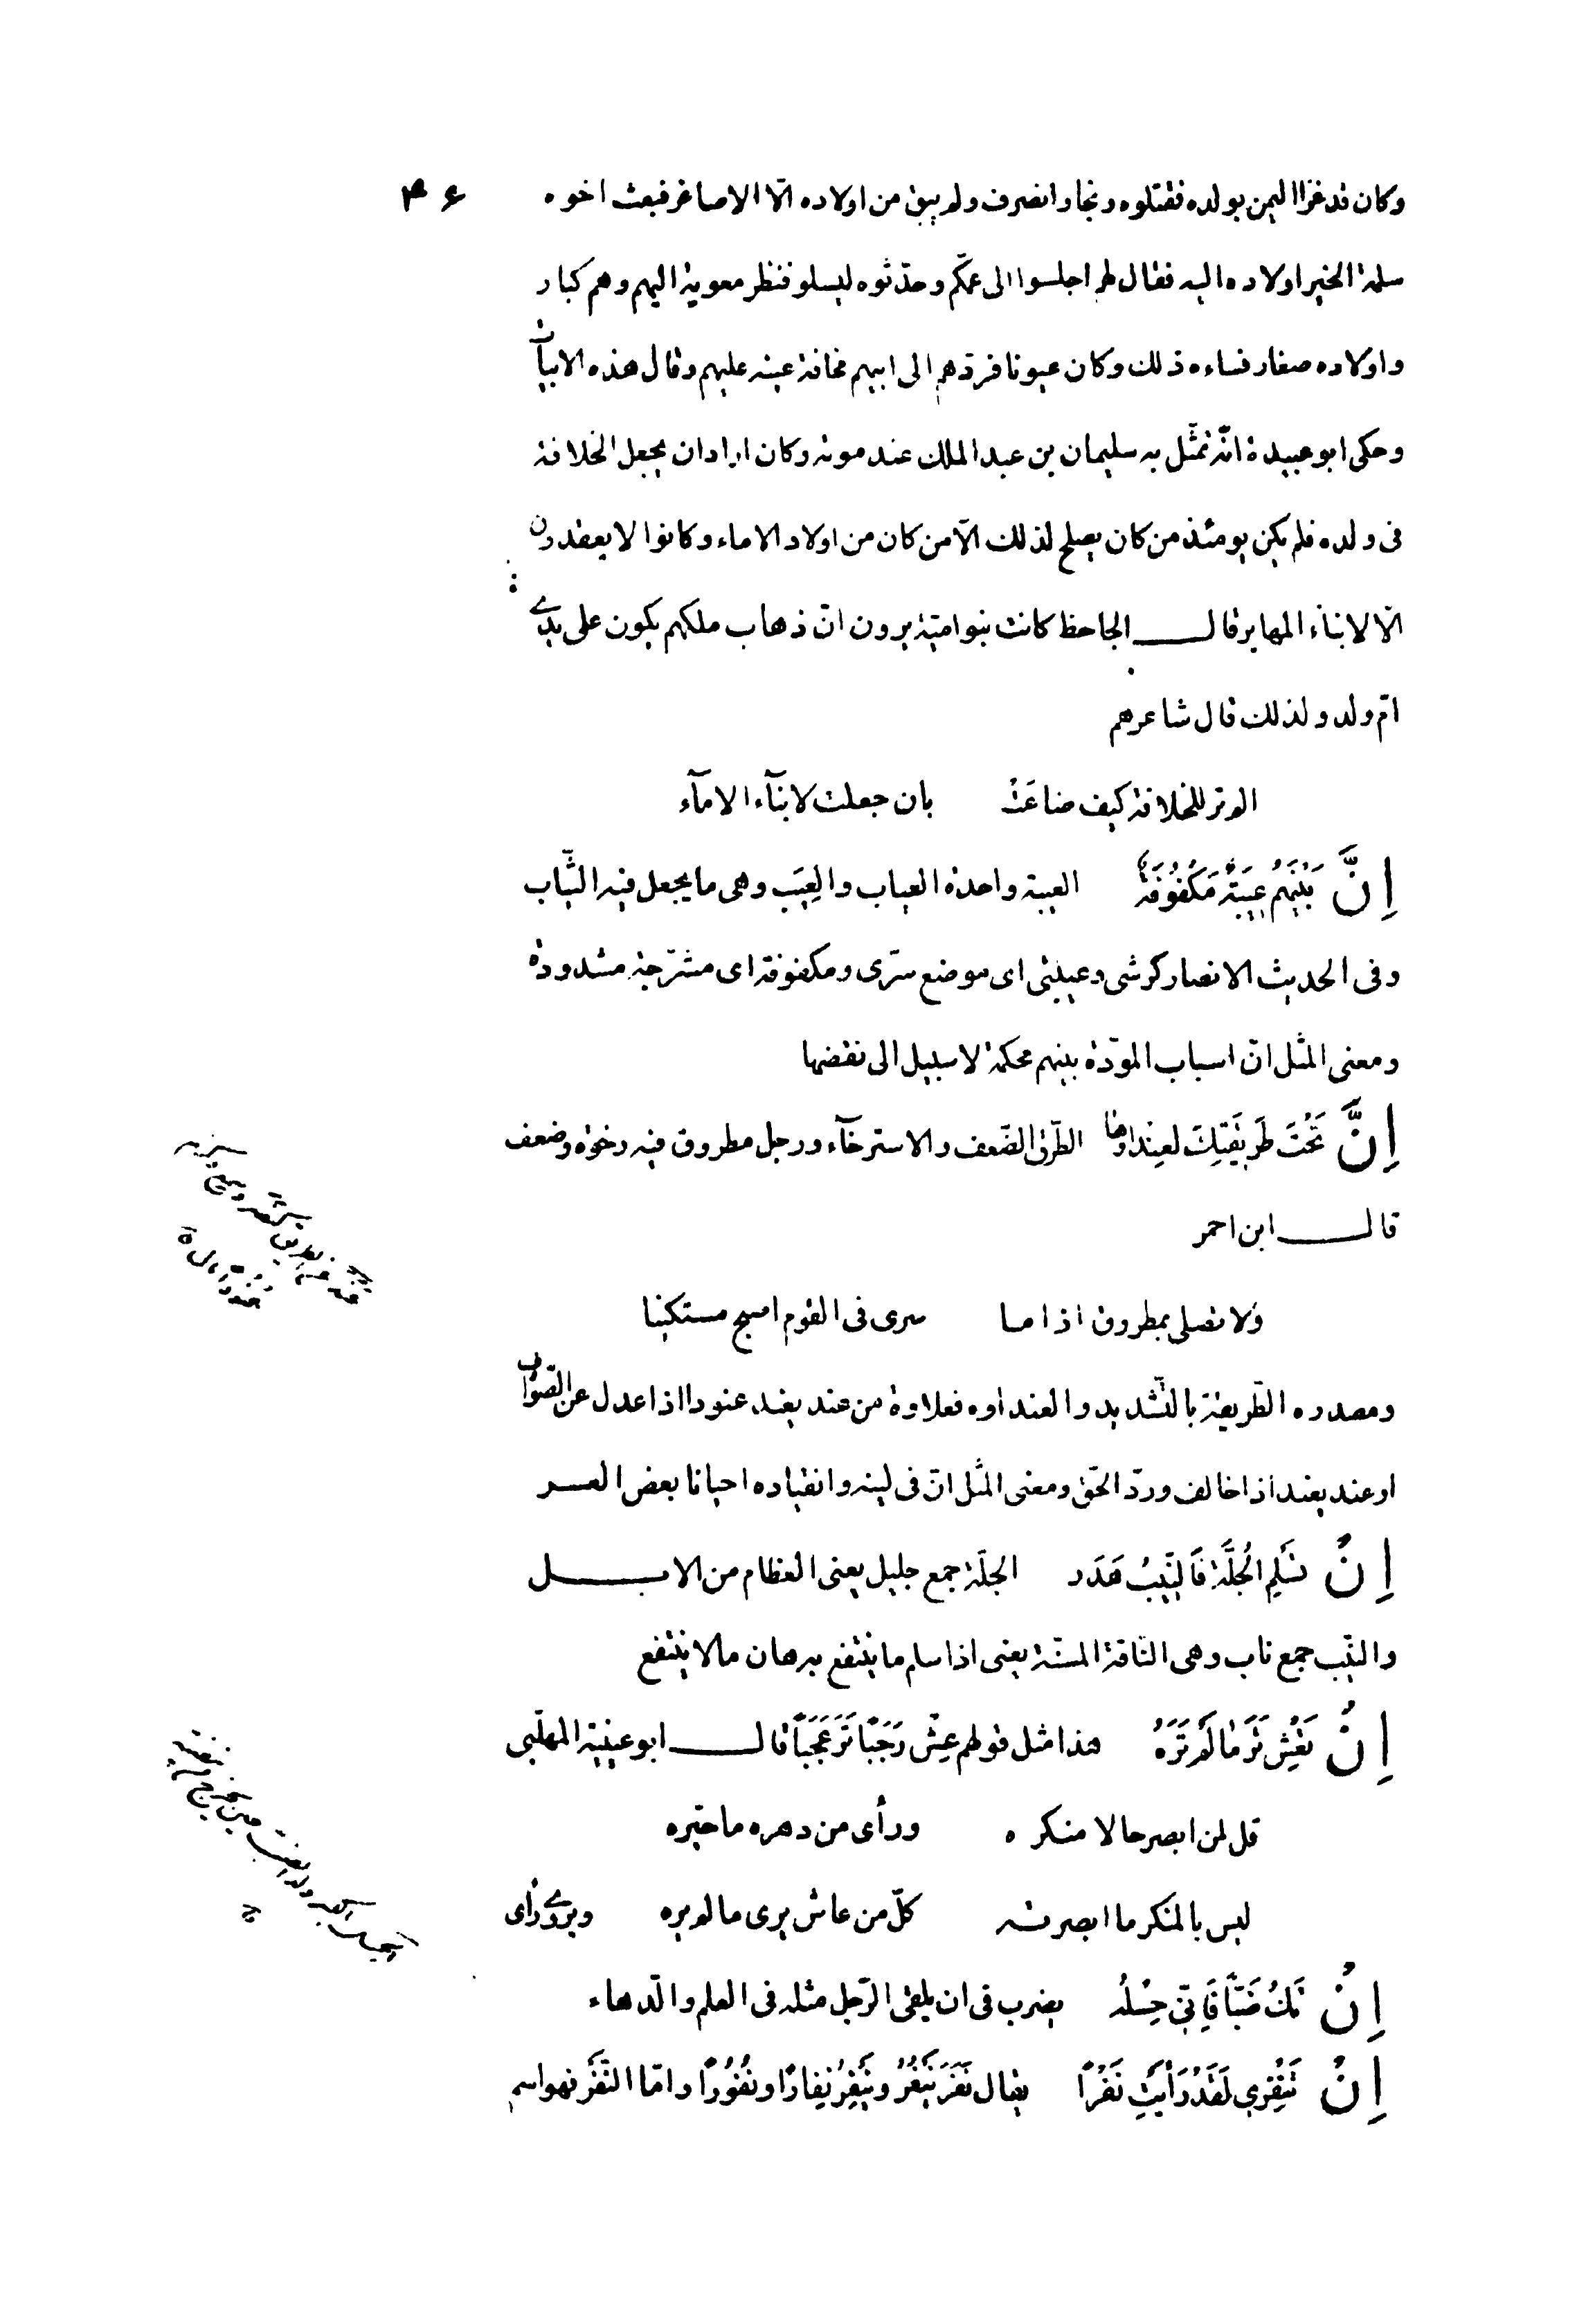 وكان قد غزا اليمن بولده فقتلوه ونجا وانصرف ولم يبق من اولاده الّا الاصاغر فبعث اخوه
۴۶
سلمة الخير اولاده اليه فقال لهم اجلسوا الى عمّكم وحدّثوه ليسلو فنظر معوية اليهم وهم كبار
واولاده صغار فساءه ذلك وكان عيونا فردّهم الى ابيهم مخافة عينه عليهم وقال هذه الابيات
وحكى ابو عبيدة انّه تمثّل به سليمان بن عبد الملك عند موته وكان اراد ان يجعل الخلافة
فى ولده فلم يكن يومئذ من كان يصلح لذلك الّا من كان من اولاد الاماء وكانوا لا يعقدون
الّا لابناء المهاير قال الجاحظ كانت بنو اميّة يرون انّ ذهاب ملكهم يكون على يدى
امّ ولد ولذلك قال شاعرهم
الم تر للخلافة كيف ضاعَتْ بان جعلت لابنآء الامآء
اِنَّ بَيْنَهُمْ عِيبَةً مَكْفُوفَةً العيبة واحدة العياب والعِيَب وهى ما يجعل فيه الثّياب
وفى الحديث الانصار كرشى وعيبتى اى موضع سرّى ومكفوفة اى مشرّجة مشدودة
ومعنى المثل انّ اسباب المودّة بينهم محكمة لا سبيل الى نقضها
اِنَّ تَحْتَ طَرِيقَتِكَ لعِنْداوة الطّرق الضّعف والاسترخآء ورجل مطروق فيه رخوة وضعف
قال ابن احمر
ولا تصلى بمطروق اذا ما سرى فى القوم اصبح مستكينا
ومصدره الطّريقة بالتّشديد والعنداوه فعلاوة من عند يعند عنودا اذا عدل عن الصّواب
او عند يعند اذا خالف وردّ الحقّ ومعنى المثل انّ فى لينه وانقياده احيانا بعض العسر
اِنْ تَسْلَمِ الْجُلَّةُ فَالنِّيبُ هَدَر الجلّة جمع جليل يعنى العظام من الابل
والنّيب جمع ناب وهى النّاقة المسنّة يعنى اذا سلم ما ينتفع به هان ما لا ينتفع
اِنْ تَعِشْ تَرَ مٰا لَمْ تَرَهُ هذا مثل قولهم عِشْ رَجَبًا تَرَ عَجَبًا قال ابو عيينة المهلّبى
قل لمن ابصر حالا منكره ورأى من دهره ما حيّره
ليس بالمنكر ما ابصرته كلّ من عاش يرى ما لم يره ويروى رأى
اِنْ تَكُ ضَبًّا فَاِنّى حِسْلُهُ يضرب فى ان يلقى الرّجل مثله فى العلم والدّهاء
اِنْ تَنْفِرِى لَقَدْ رَأَيْتِ نَفْرًا يقال نَفَرَ يَنْفُرُ ويَنْفِرُ نِفارًا ونُفُورًا وامّا النَّفْرُ فهو اسم